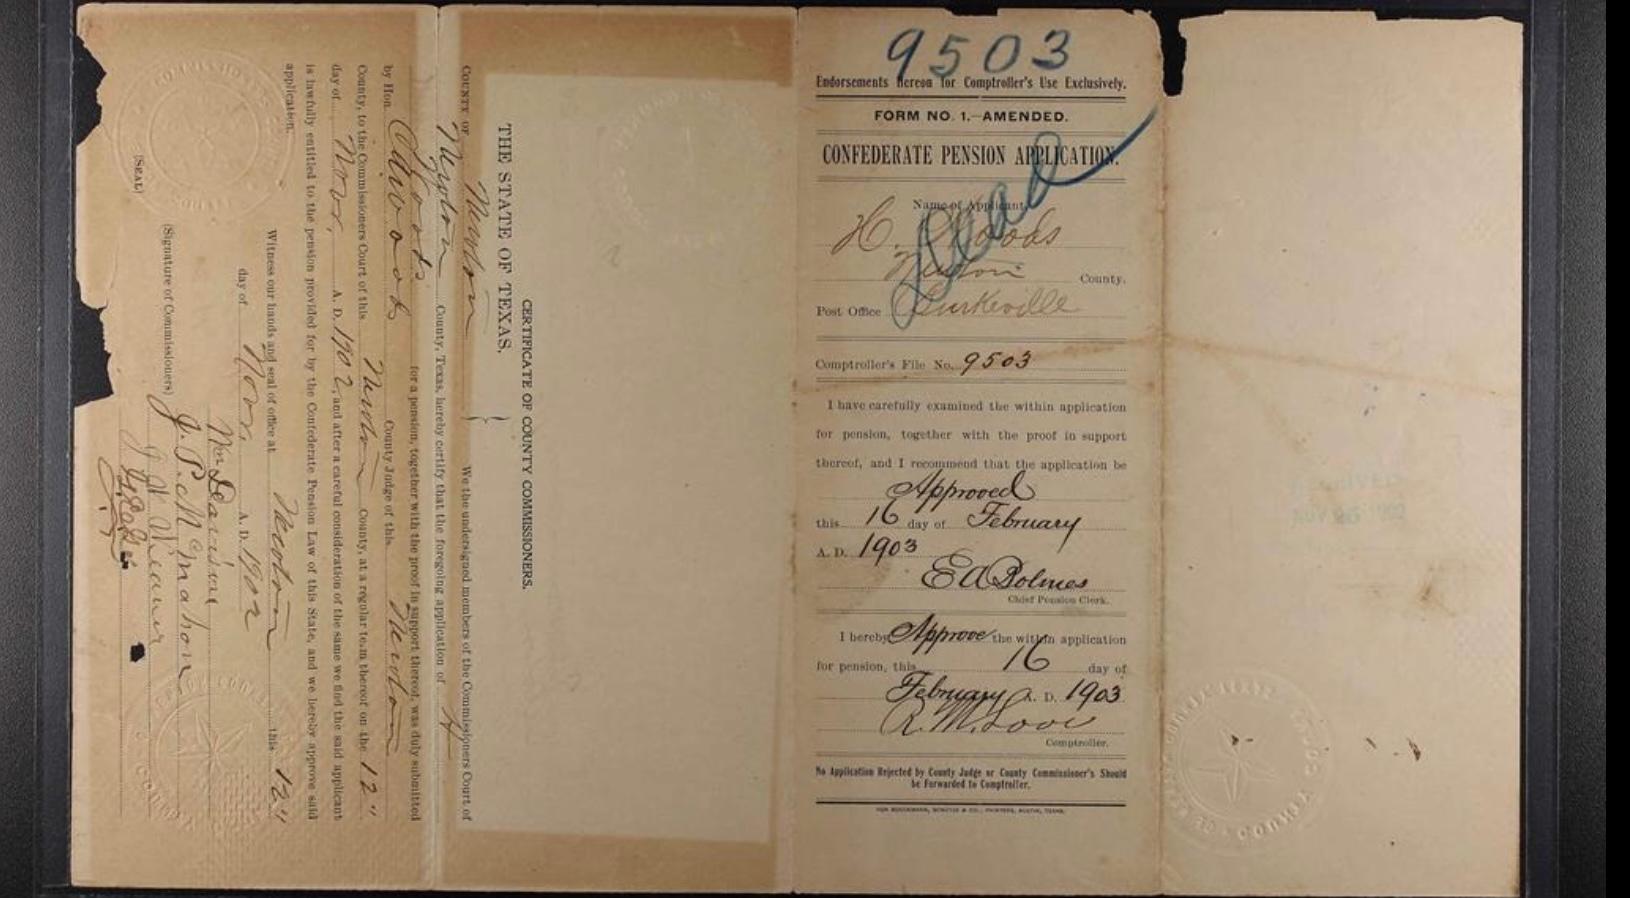 9503
Endorsements Hereon for Comptroller's Use Exclusively.
FORM NO. 1.—AMENDED.
CONFEDERATE PENSION APPLICATION.
Dead
Name of Applicant,
H. Woods
Newton County.
Post Office Burkeville
Comptroller's File No. 9503
I have carefully examined the within application
for pension, together with the proof in support
thereof, and I recommend that the application be
Approved
this 16 day of February
A. D. 1903
E A Bolmes
Chief Pension Clerk.
I hereby Approve the within application
for pension, this 16 day of
February A. D. 1903
R. M. Love
Comptroller.
No Application Rejected by County Judge or County Commissioner's Should
be Forwarded to Comptroller.
VON BOECKMANN, SCHUTZE & CO., PRINTERS, AUSTIN, TEXAS.
CERTIFICATE OF COUNTY COMMISSIONERS.
THE STATE OF TEXAS.
COUNTY OF Newton } We the undersigned members of the Commissioners Court of
Newton County, Texas, hereby certify that the foregoing application of H
Woods for a pension, together with the proof in support thereof, was duly submitted
by Hon. County Judge of this Newton
County, to the Commissioners Court of this Newton County, at a regular term thereof on the 12"
day of Nov. A. D. 1902, and after a careful consideration of the same we find the said applicant
is lawfully entitled to the pension provided for by the Confederate Pension Law of this State, and we hereby approve said
application.
Witness our hands and seal of office at Newton this 12"
day of Nov. A. D. 1902
Davison
J. P. McMahon
J W Weaver
(Signature of Commissioners)
(SEAL)